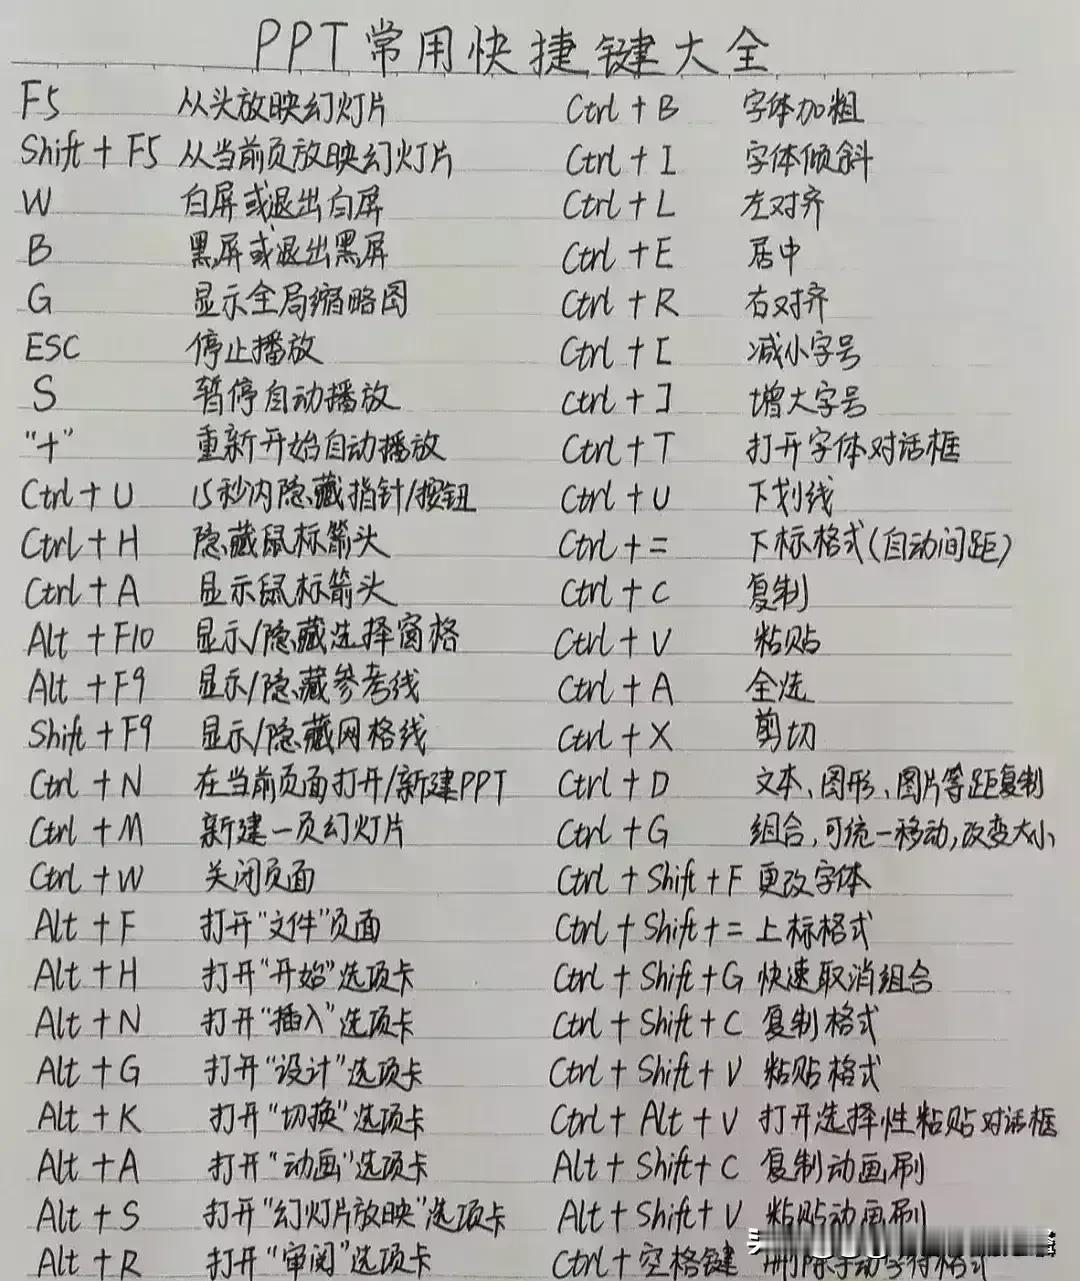 PPT常用快捷键大全
F5 从头放映幻灯片 Ctrl + B 字体加粗
Shift + F5 从当前页放映幻灯片 Ctrl + I 字体倾斜
W 白屏或退出白屏 Ctrl + L 左对齐
B 黑屏或退出黑屏 Ctrl + E 居中
G 显示全局缩略图 Ctrl + R 右对齐
ESC 停止播放 Ctrl + [ 减小字号
S 暂停自动播放 Ctrl + ] 增大字号
"+" 重新开始自动播放 Ctrl + T 打开字体对话框
Ctrl + U 15秒内隐藏指针/按钮 Ctrl + U 下划线
Ctrl + H 隐藏鼠标箭头 Ctrl + = 下标格式(自动间距)
Ctrl + A 显示鼠标箭头 Ctrl + C 复制
Alt + F10 显示/隐藏选择窗格 Ctrl + V 粘贴
Alt + F9 显示/隐藏参考线 Ctrl + A 全选
Shift + F9 显示/隐藏网格线 Ctrl + X 剪切
Ctrl + N 在当前页面打开/新建PPT Ctrl + D 文本、图形、图片等距复制
Ctrl + M 新建一页幻灯片 Ctrl + G 组合,可统一移动,改变大小
Ctrl + W 关闭页面 Ctrl + Shift + F 更改字体
Alt + F 打开"文件"页面 Ctrl + Shift + = 上标格式
Alt + H 打开"开始"选项卡 Ctrl + Shift + G 快速取消组合
Alt + N 打开"插入"选项卡 Ctrl + Shift + C 复制格式
Alt + G 打开"设计"选项卡 Ctrl + Shift + V 粘贴格式
Alt + K 打开"切换"选项卡 Ctrl + Alt + V 打开选择性粘贴对话框
Alt + A 打开"动画"选项卡 Alt + Shift + C 复制动画刷
Alt + S 打开"幻灯片放映"选项卡 Alt + Shift + V 粘贴动画刷
Alt + R 打开"审阅"选项卡 Ctrl + 空格键